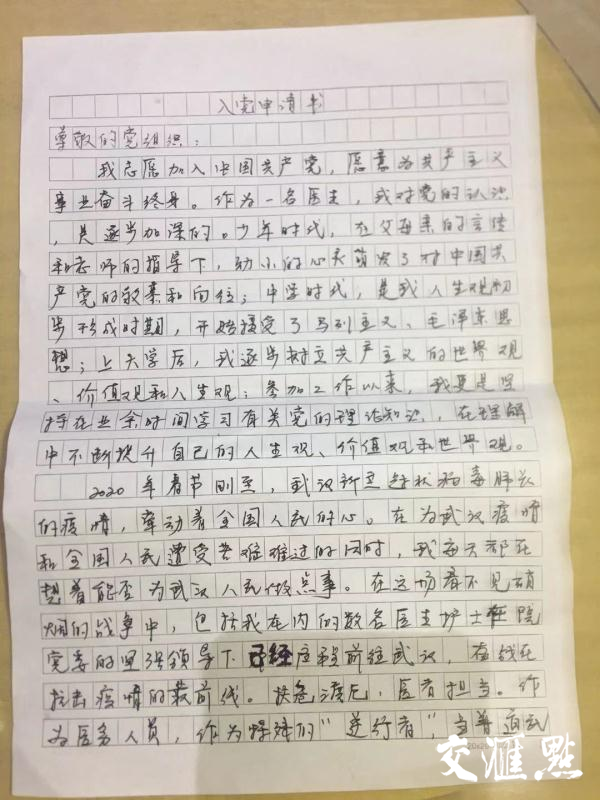 入党申请书
尊敬的党组织：
我志愿加入中国共产党，愿意为共产主义
事业奋斗终身。作为一名医生，我对党的认识
，是逐步加深的。少年时代，在父母亲的言传
和老师的指导下，幼小的心灵萌发了对中国共
产党的敬慕和向往；中学时代，是我人生观初
步形成时期，开始接受了马列主义、毛泽东思
想；上大学后，我逐步树立共产主义的世界观
、价值观和人生观；参加工作以来，我更是坚
持在业余时间学习有关党的理论知识，在理解
中不断提升自己的人生观、价值观和世界观。
2020年春节刚至，武汉新型冠状病毒肺炎
的疫情，牵动着全国人民的心。在为武汉疫情
和全国人民遭受苦难难过的同时，我每天都在
想着能否为武汉人民做点事。在这场看不见硝
烟的战争中，包括我在内的数名医生护士在院
党委的坚强领导下已经应召前往武汉，奋战在
抗击疫情的最前线。扶危渡厄，医者担当。作
为医务人员，作为特殊的“逆行者”，当普通
交汇點